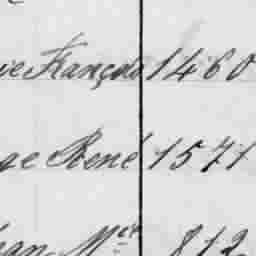 ve François 1460
ge René 1571
han Mel 812